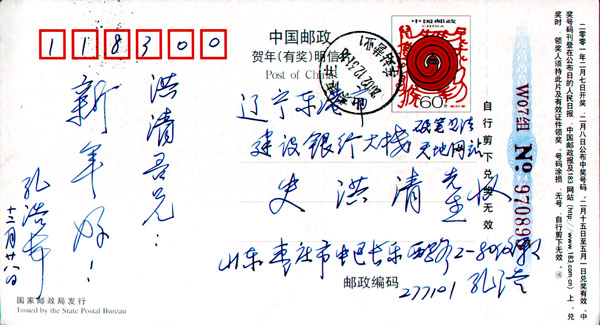 118300
中国邮政
贺年(有奖)明信片
Post of China
中国邮政
CHINA
60分
辽宁东港市
建设银行大楼
硬笔书法
天地网站
史洪清先生收
洪清吾兄:
新年好!
孔浩
十二月廿八日
山东枣庄市
邮政编码
277101 孔浩
国家邮政局发行
Issued by the State Postal Bureau
自行剪下兑奖无效
W07组 No 97089
二零零一年二月七日开奖,二月八日公布中奖号码,二月十五日至五月一日兑奖有效。中
奖号码刊登在公布日的人民日报、中国邮政报及183网站(http://www.183.com.cn)上。兑
奖时,领奖人须持此片及有效证件领奖。号码涂损、无号、自行剪下无效。